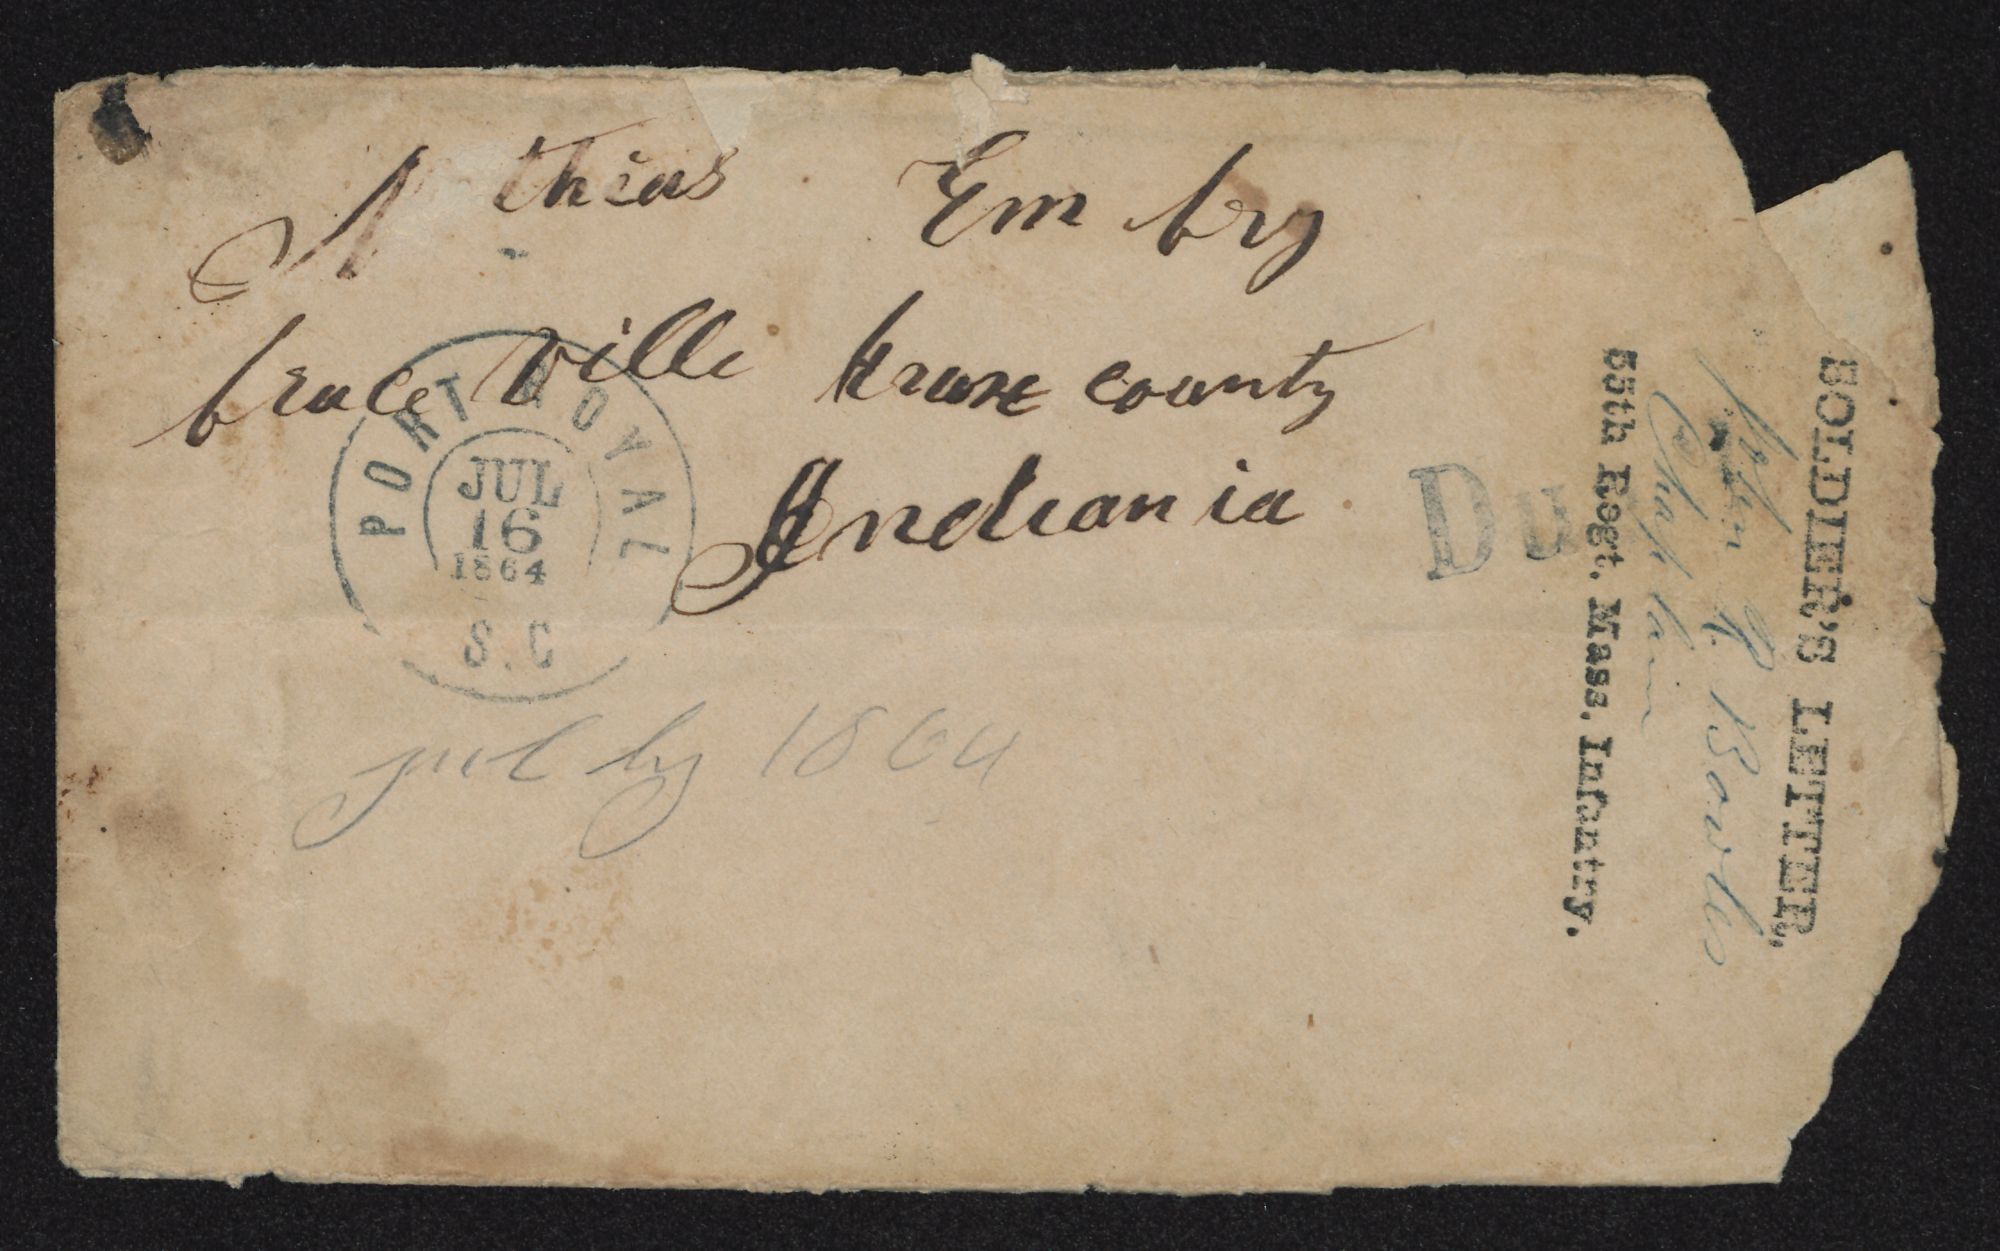 thias Em bry
bruce ville knox county
Indiania
PORT ROYAL
JUL
16
1864
S.C
july 1864
Du
SOLDIER'S LETTER,
John R. Bowles
Chaplain
55th Regt. Mass. Infantry.